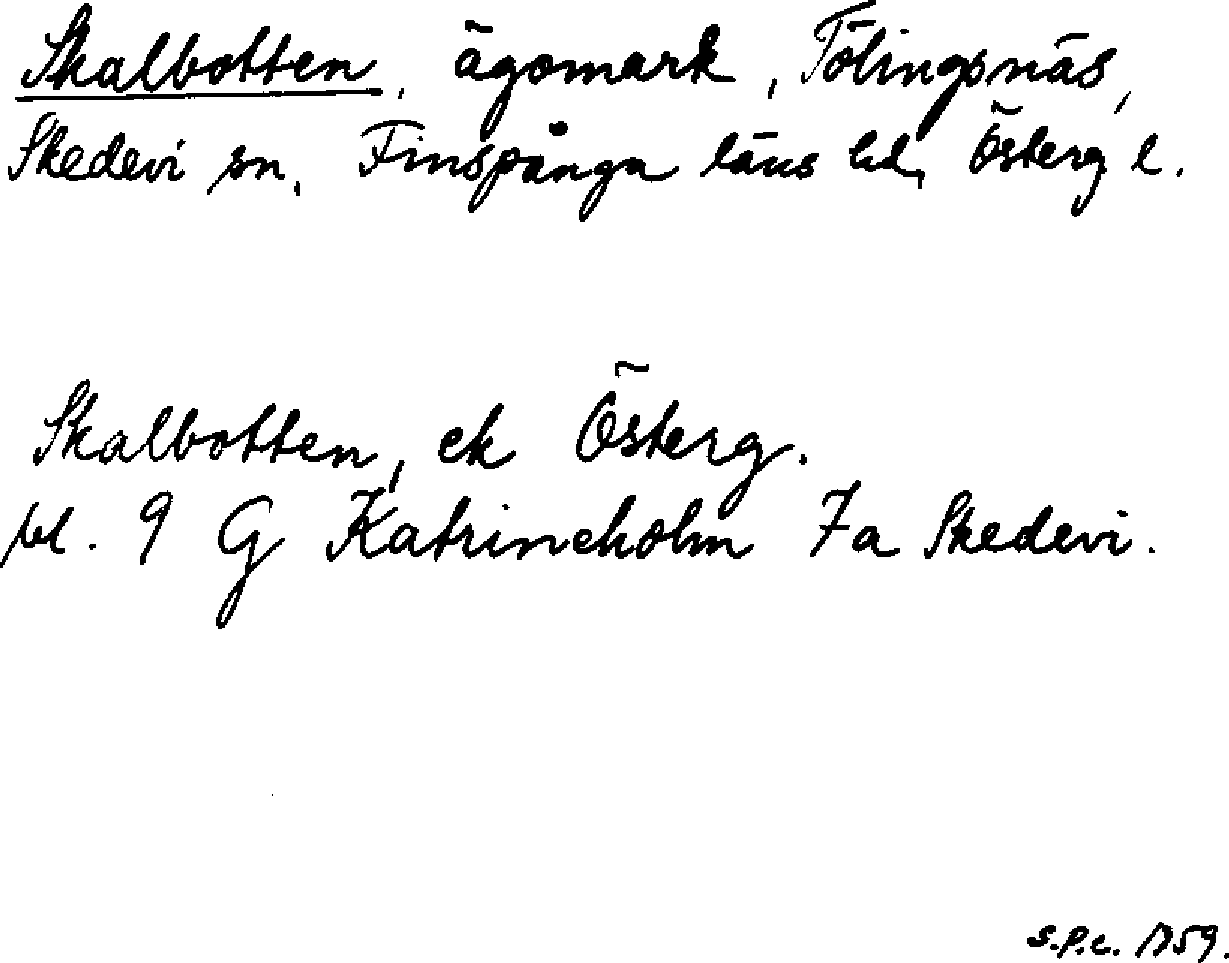 Skalbotten, ägomark, Tölingsnäs,
Skedevi sn, Finspånga läns hd, Österg l.
Skalbotten, ek Österg.
bl. 9 G Katrineholm 7a Skedevi.
S.P.c. 1959.